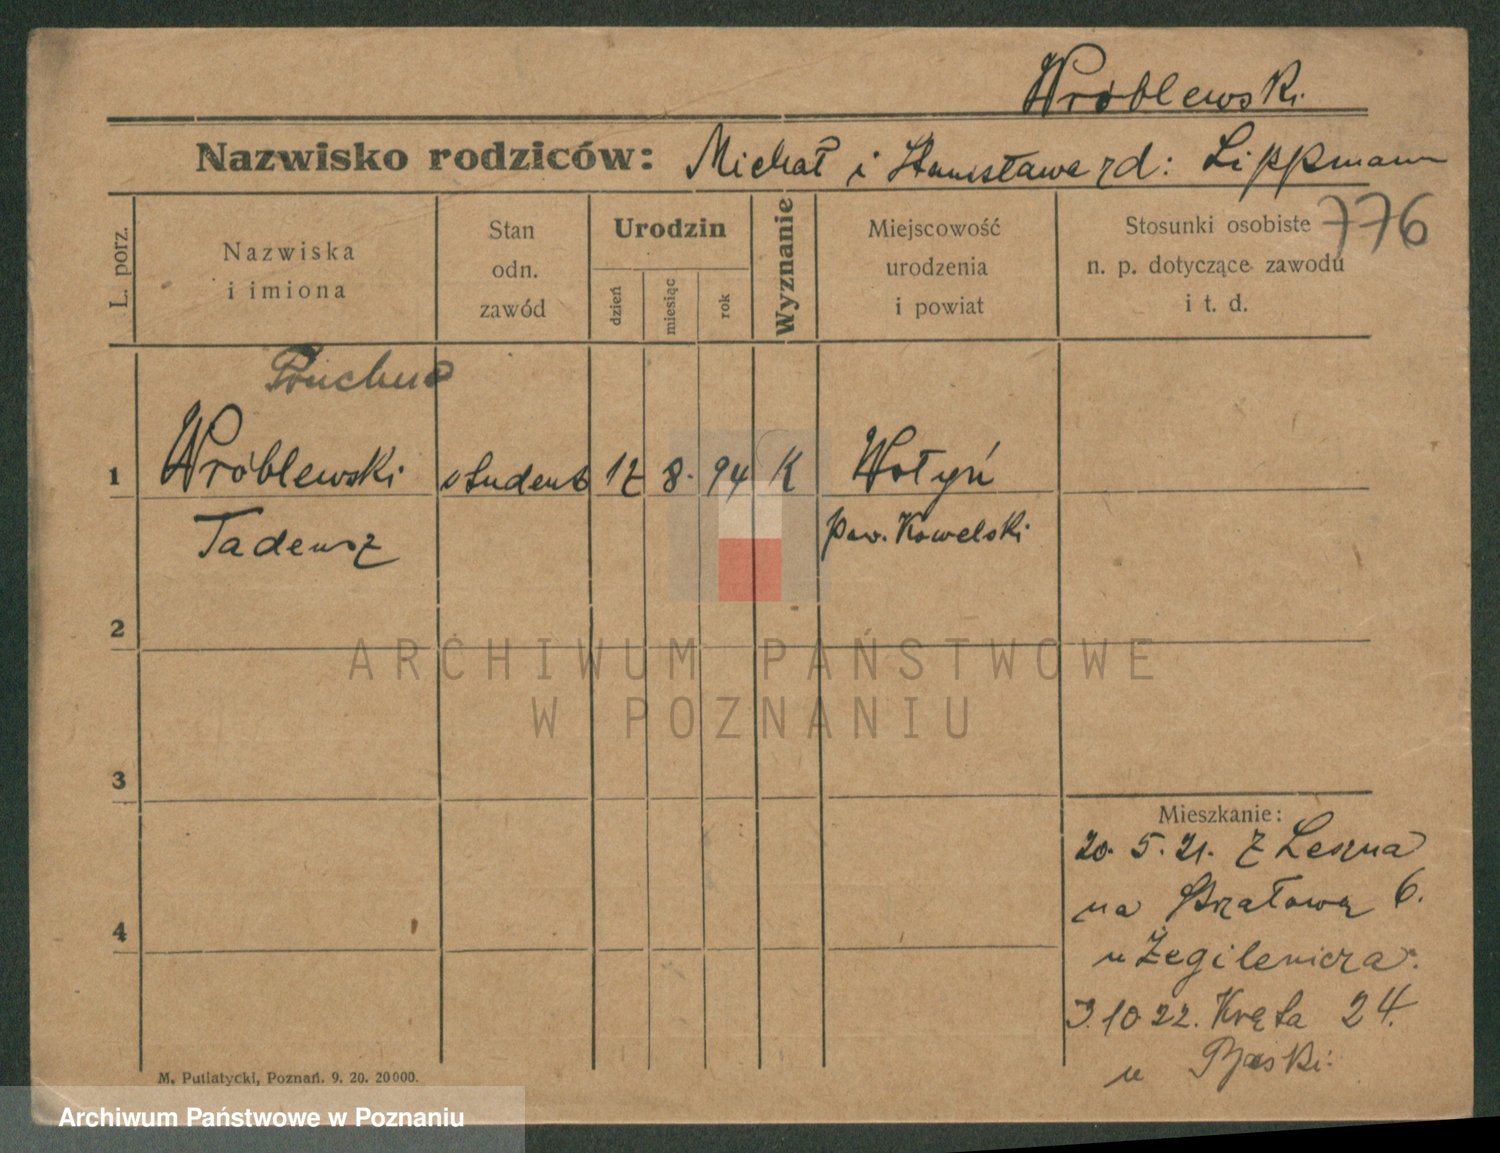 Wróblewski
Nazwisko rodziców: Michał i Stanisława rd: Lippmann
776
L. porz.
Nazwiska
i imiona
Stan
odn.
zawód
Urodzin
dzień
miesiąc
rok
Wyznanie
Miejscowość
urodzenia
i powiat
Stosunki osobiste
n. p. dotyczące zawodu
i t. d.
1 Wróblewski student 12 8. 94 K Wołyń
Tadeusz pow. Kowelski
2
3
4
Mieszkanie:
20. 5. 21. z Leszna
na Strzałową 6.
u Żegilewicza.
3.10 22. Kręta 24.
u
M. Putiatycki, Poznań. 9. 20. 20000.
ARCHIWUM PAŃSTWOWE
W POZNANIU
Archiwum Państwowe w Poznaniu